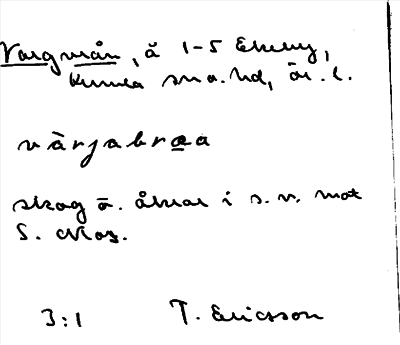 Vargmån, å 1-5 Ekeby,
Kumla sn o. hd, Ör. l.
värjabråa
skog o. åkrar i s. v. mot
S. Mos.
3:1 T. Ericsson